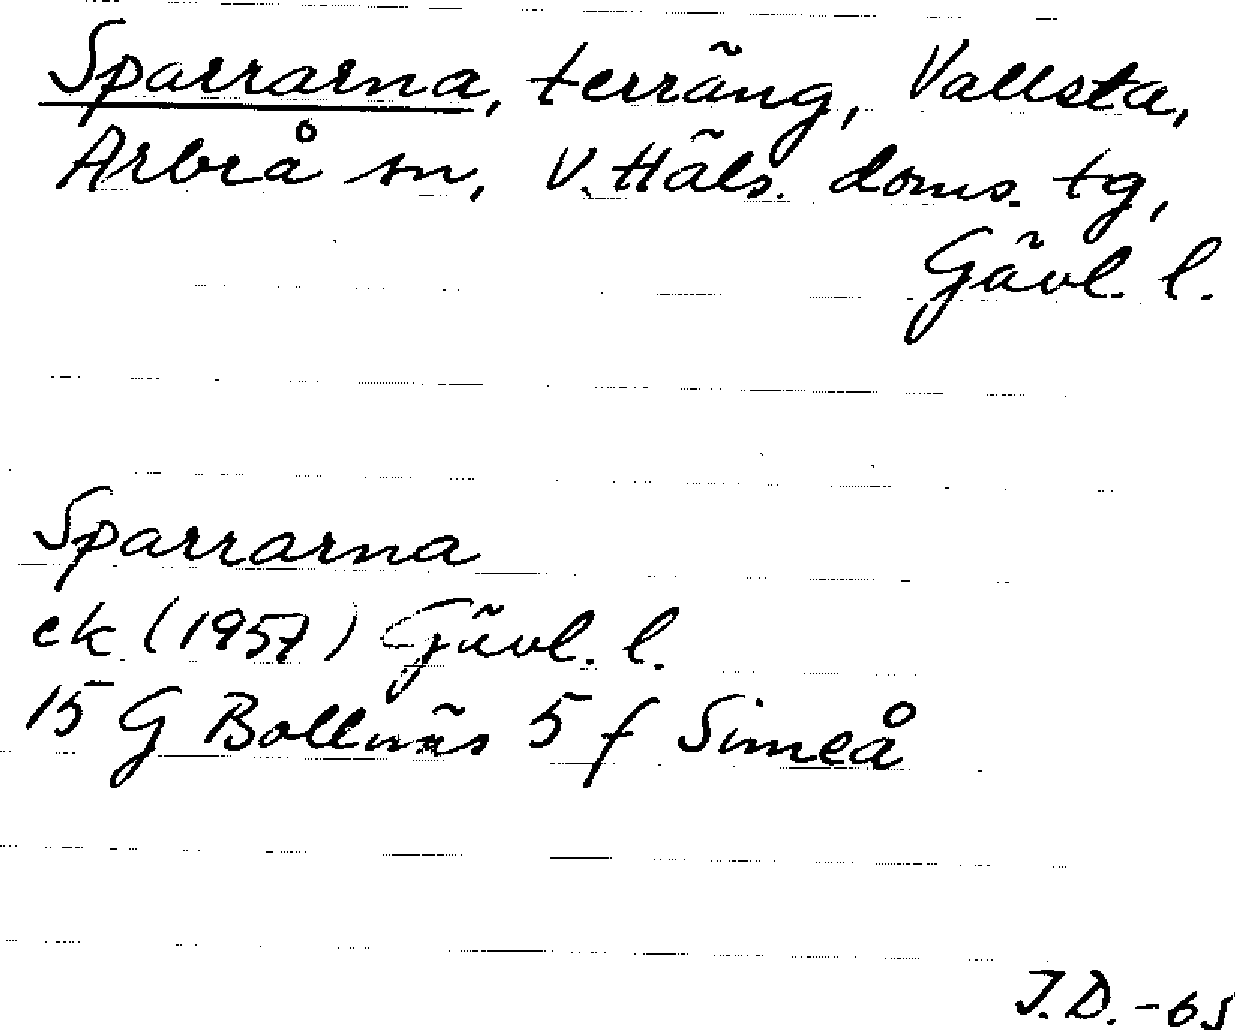 Sparrarna, terräng, Vallsta,
Arbrå sn, V. Häls. doms. tg,
Gävl. l.
Sparrarna
ek (1957) Gävl. l.
15 G Bollnäs 5 f Simeå
J.D. -65